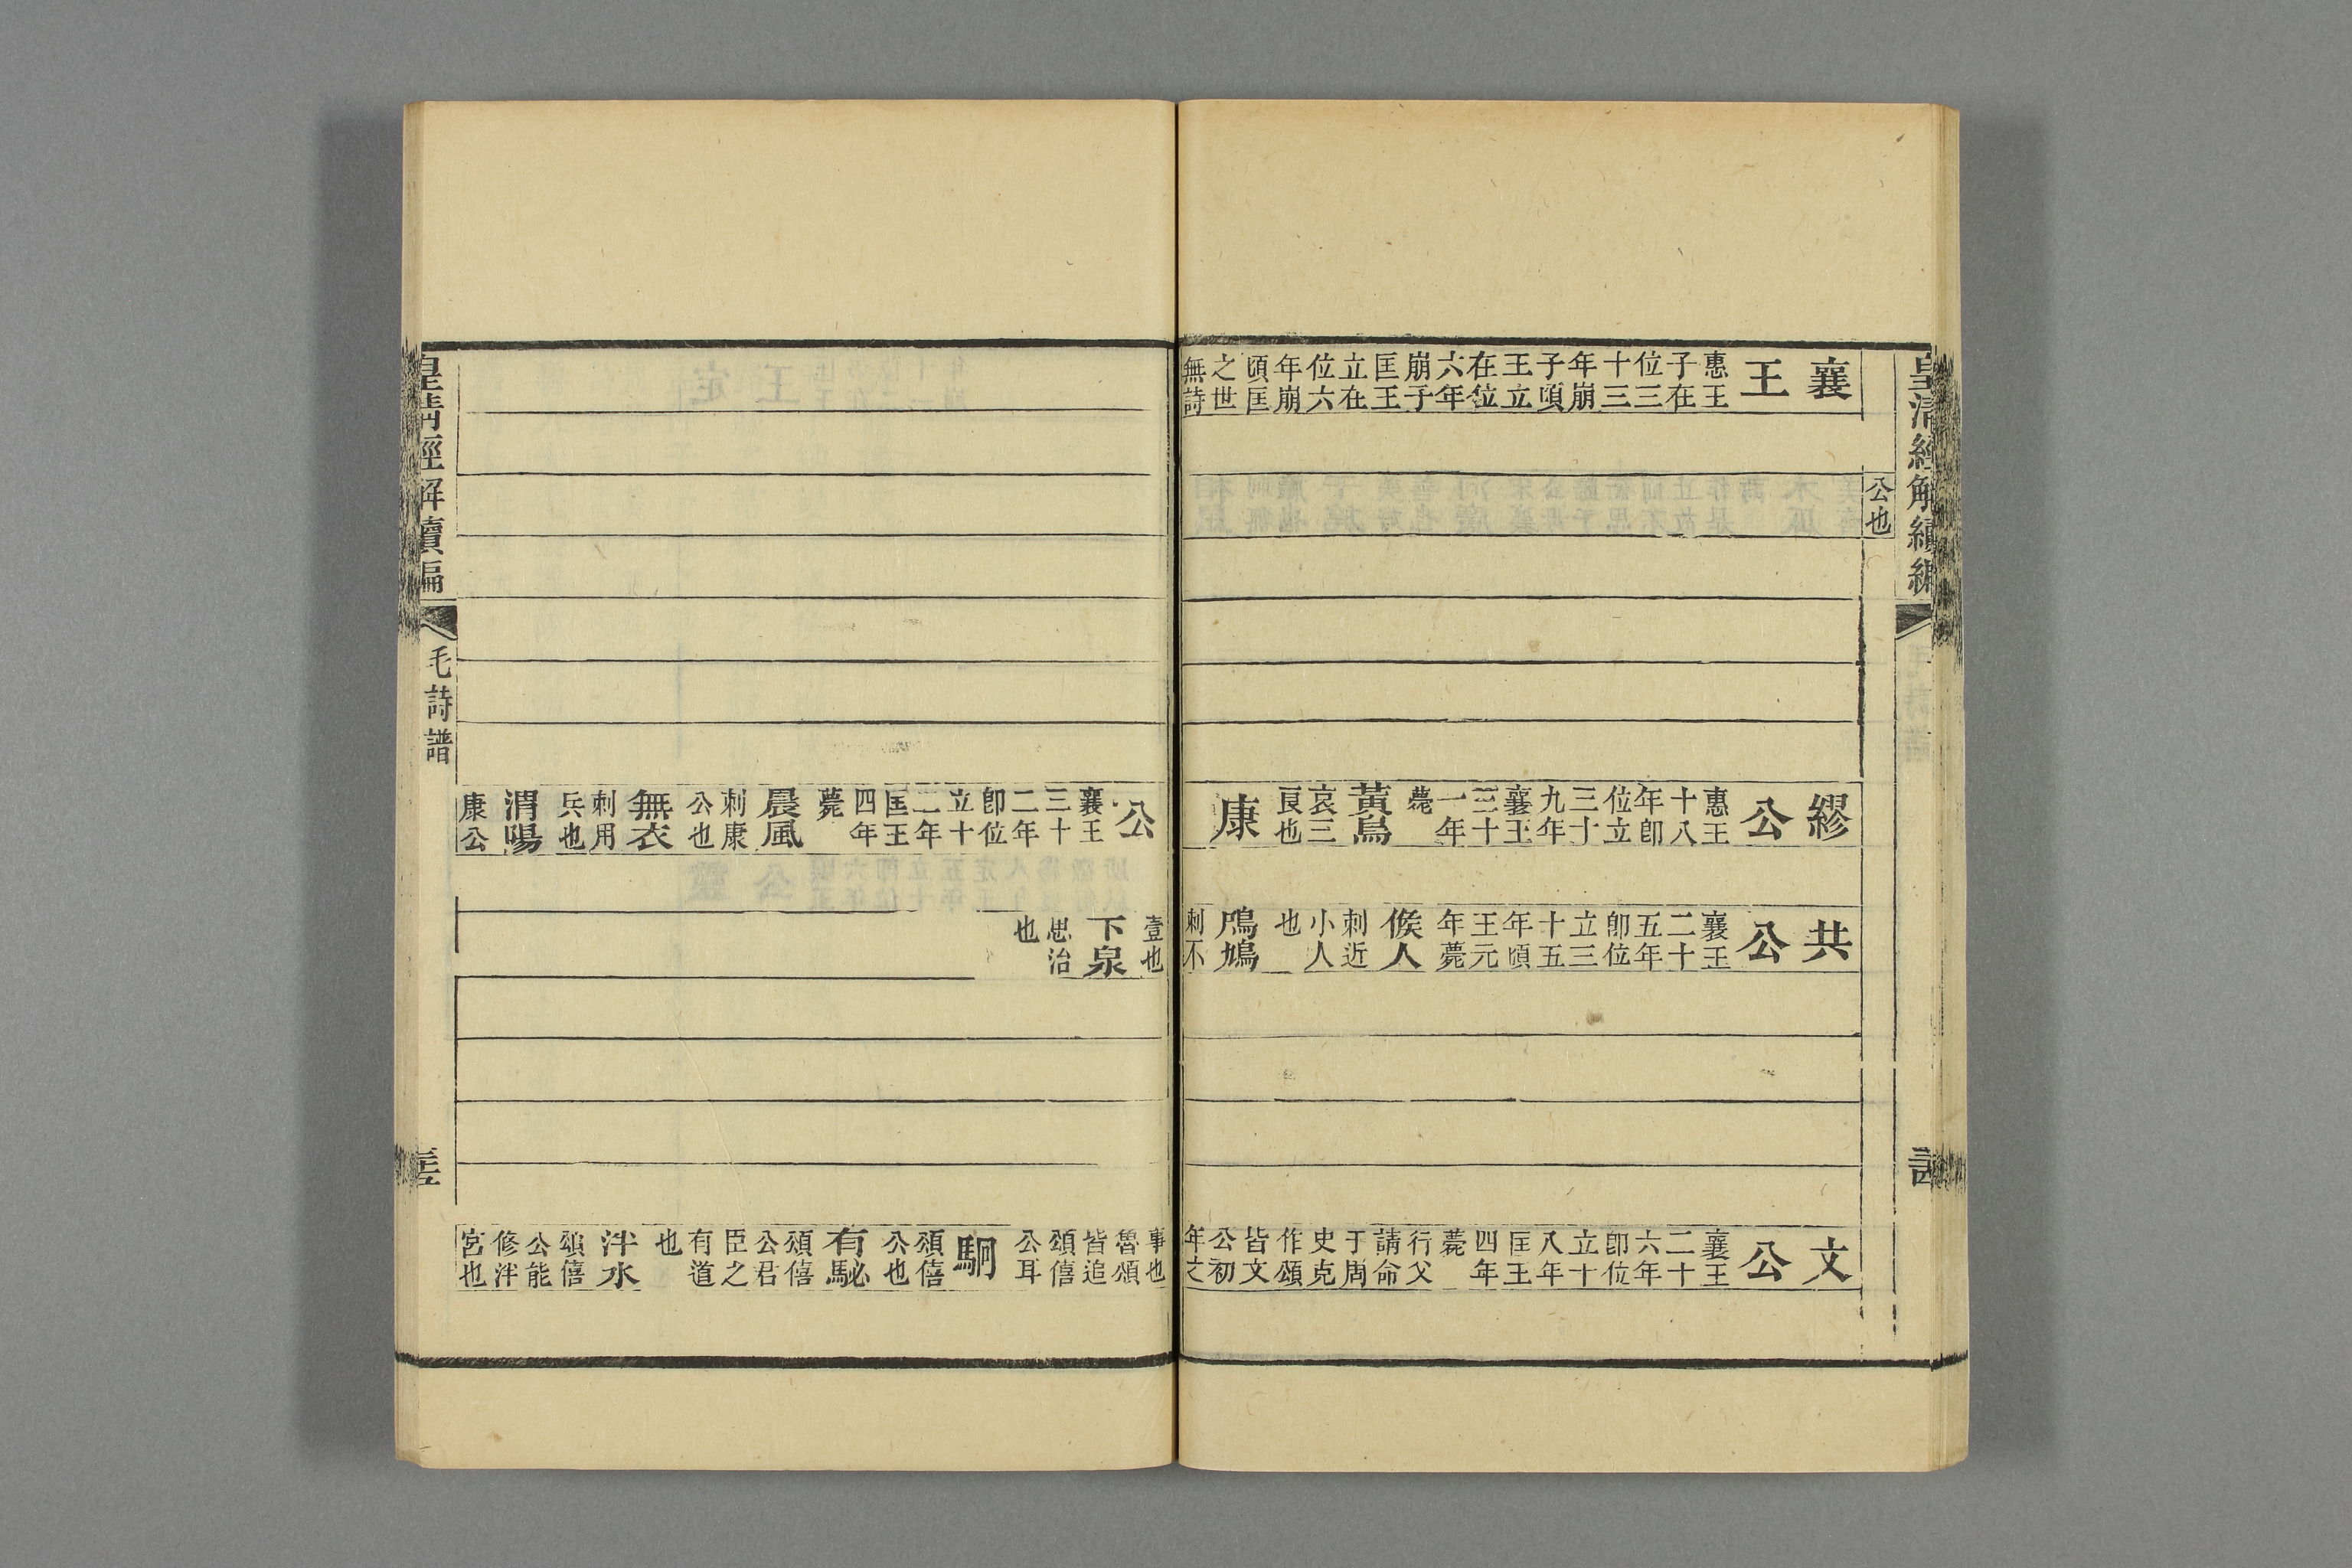 皇清經解續編
公也
襄王 惠王子在位三十三年崩子頃王立在位六年崩子匡王立在位六年崩頃匡之世無詩
繆公 惠王十八年卽位立三十九年襄王三十一年薨 黃鳥 哀三良也 康
共公 襄王二十五年卽位立三十五年頃王元年薨 候人 刺近小人也 鳲鳩 刺不
文公 襄王二十六年卽位立十八年匡王四年薨行父請命于周史克作頌皆文公初年文
公 襄王三十二年卽位立十二年匡王四年薨 晨風 刺康公也 無衣 刺用兵也 渭陽 康公
壹也 下泉 思治也
事也魯頌皆追頌僖公耳 駉 頌僖公也 有駜 頌僖公君臣之有道也 泮水 頌僖公能修泮宮也
皇清經解續編
毛詩譜